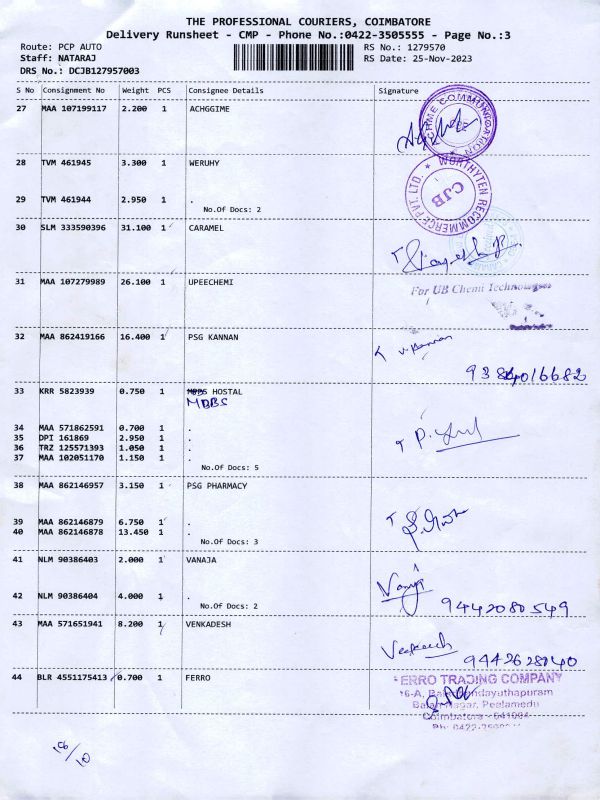 THE PROFESSIONAL COURIERS, COIMBATORE
Delivery Runsheet - CMP - Phone No.:0422-3505555 - Page No.:3
Route: PCP AUTO RS No.: 1279570
Staff: NATARAJ RS Date: 25-Nov-2023
DRS No.: DCJB127957003
S No Consignment No Weight PCS Consignee Details Signature
27 MAA 107199117 2.200 1 ACHGGIME
28 TVM 461945 3.300 1 WERUHY
WORTHYTEN RECOMMERCE PVT. LTD.
CJB
29 TVM 461944 2.950 1 .
No.Of Docs: 2
30 SLM 333590396 31.100 1 CARAMEL
31 MAA 107279989 26.100 1 UPEECHEMI
For UB Chemi Technologies
32 MAA 862419166 16.400 1 PSG KANNAN
V. Kannan
33 KRR 5823939 0.750 1 MBBS HOSTAL
MBBS
34 MAA 571862591 0.700 1 .
35 DPI 161869 2.950 1 .
36 TRZ 125571393 1.050 1 .
37 MAA 102051170 1.150 1 .
No.Of Docs: 5
38 MAA 862146957 3.150 1 PSG PHARMACY
39 MAA 862146879 6.750 1 .
40 MAA 862146878 13.450 1 .
No.Of Docs: 3
41 NLM 90386403 2.000 1 VANAJA
42 NLM 90386404 4.000 1 .
No.Of Docs: 2
9442080549
43 MAA 571651941 8.200 1 VENKADESH
9442628940
44 BLR 4551175413 0.700 1 FERRO
FERRO TRADING COMPANY
Peelamedu